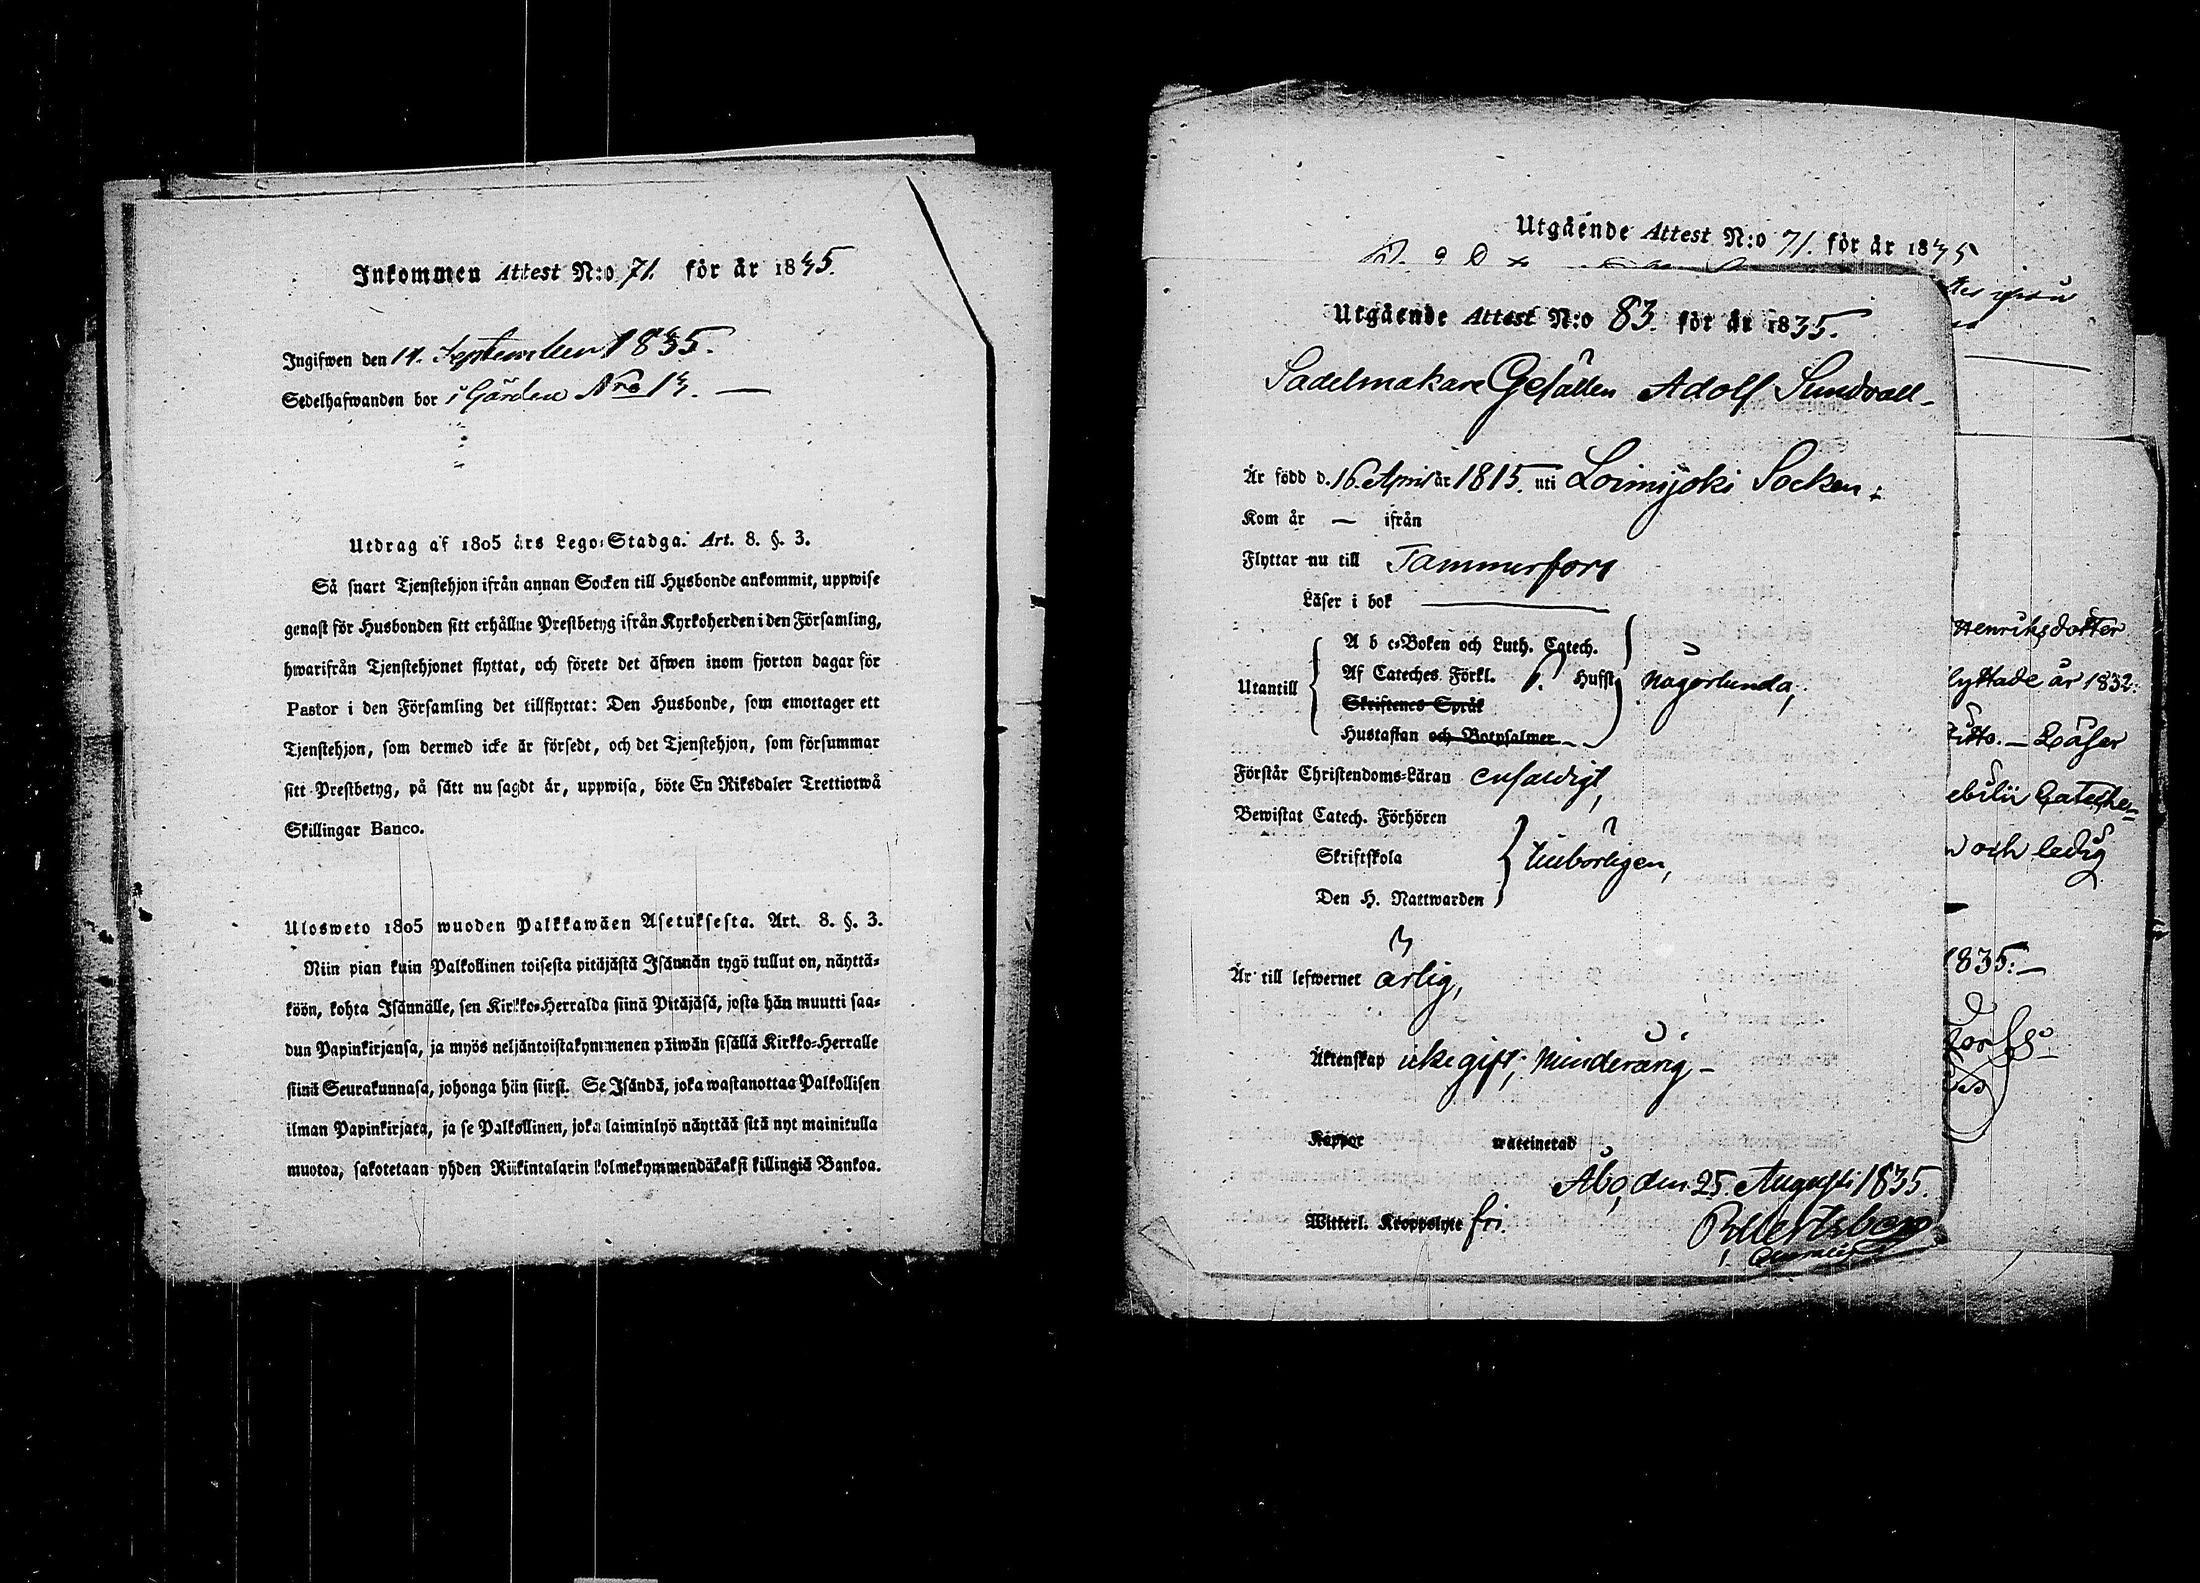 Inkommen Attest N:o 71. för år 1835.
Ingifwen den 14. September 1835.
Sedelhafwanden bor i Gården Nro 13. —
Utdrag af 1805 års Lego-Stadga. Art. 8. §. 3.
Så snart Tjenstehjon ifrån annan Socken till Husbonde ankommit, uppwise
genast för Husbonden sitt erhållne Prestbetyg ifrån Kyrkoherden i den Församling,
hwarifrån Tjenstehjonet flyttat, och förete det äfwen inom fjorton dagar för
Pastor i den Församling det tillflyttat: Den Husbonde, som emottager ett
Tjenstehjon, som dermed icke är försedt, och det Tjenstehjon, som försummar
sitt Prestbetyg, på sätt nu sagdt är, uppwisa, böte En Riksdaler Trettiotwå
Skillingar Banco.
Ulosweto 1805 wuoden Palkkawäen Asetuksesta. Art. 8. §. 3.
Niin pian kuin Palkollinen toisesta pitäjästä Isännän tygö tullut on, näyttä-
köön, kohta Isännälle, sen Kirkko-Herralda siinä Pitäjäsä, josta hän muutti saa-
dun Papinkirjansa, ja myös neljäntoistakymmenen päiwän sisällä Kirkko-Herralle
siinä Seurakunnasa, johonga hän siirst. Se Isändä, joka wastanottaa Palkollisen
ilman Papinkirjata, ja se Palkollinen, joka laiminlyö näyttää sitä nyt mainitulla
muotoa, sakotetaan yhden Riikintalarin kolmekymmendäkaksi killingiä Bankoa.
Utgående Attest N:o 71. för år 1835
Utgående Attest N:o 83. för år 1835.
Sadelmakare Gesällen Adolf Sundvall
Är född d. 16 April år 1815. uti Loimijoki Socken
Kom år — ifrån
Flyttar nu till Tammerfors
Läser i bok —
A b c-Boken och Luth. Catech.
Utantill Af Cateches Förkl. Husst någorlunda,
Skriftenes Språk
Hustaflan och Botpsalmer
Förstår Christendoms-Läran enfaldigt,
Bewistat Catech. Förhören
Skriftskola tillbörligen,
Den H. Nattwarden
Är till lefwernet ärlig,
Äktenskap icke gift; minderårig –
Koppor waccinerad
Åbo, den 25. Augusti 1835.
Witterl. Kroppslyte fri.
Henriksdotter
flyttade år 1832:
ditto. — Läser
Cateche-
och ledig
1835: —